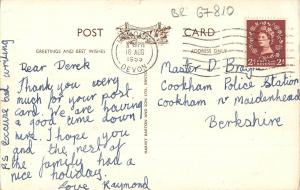 BR G7810
POST CARD
GREETINGS AND BEST WISHES
ADDRESS ONLY
18 AUG
1955
DEVON
2D
Dear Derek
Thank you very
much for your post
card. We are having
a good time down
here. I hope you
and the rest of
the family had a
nice holiday.
Love Raymond
PS excuse bad writing
Master D
Cookham Police Station
Cookham Nr Maidenhead
Berkshire